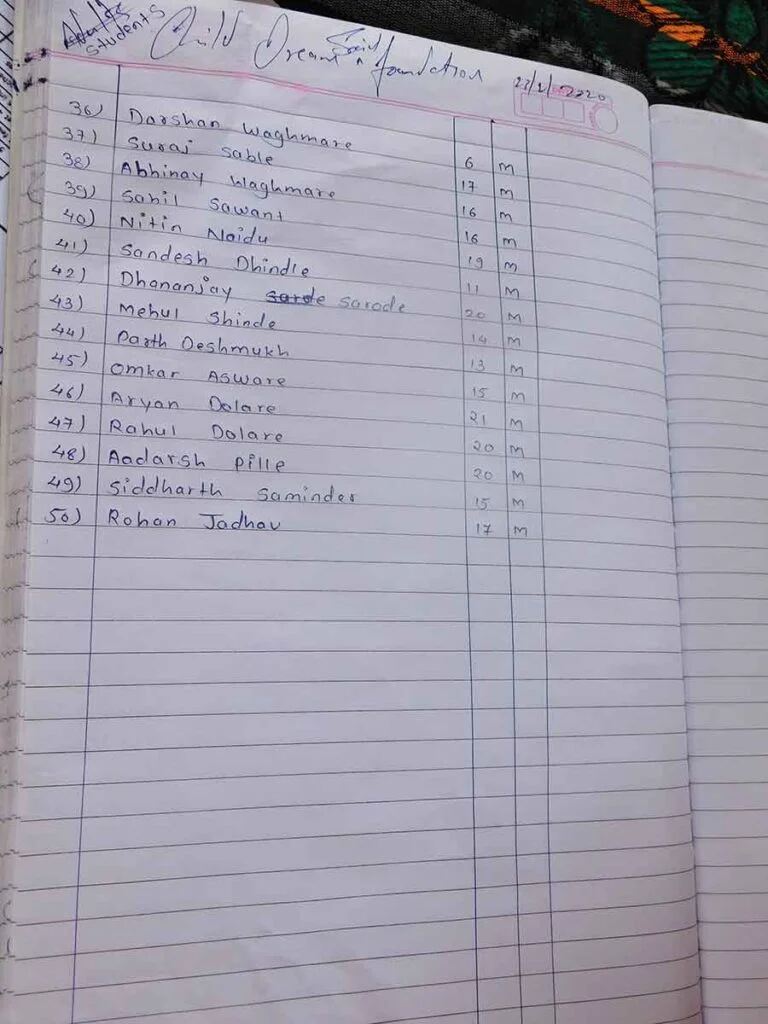 students
Child Dream foundation
36) Darshan Waghmare 6 M
37) Suraj Sable 17 M
38) Abhinay Waghmare 16 M
39) Sahil Sawant 16 M
40) Nitin Naidu 19 M
41) Sandesh Dhindle 11 M
42) Dhananjay sarode 20 M
43) Mehul Shinde 14 M
44) Parth Deshmukh 13 M
45) Omkar Asware 15 M
46) Aryan Dolare 21 M
47) Rahul Dolare 20 M
48) Aadarsh pille 20 M
49) Siddharth Saminder 15 M
50) Rohan Jadhav 17 M